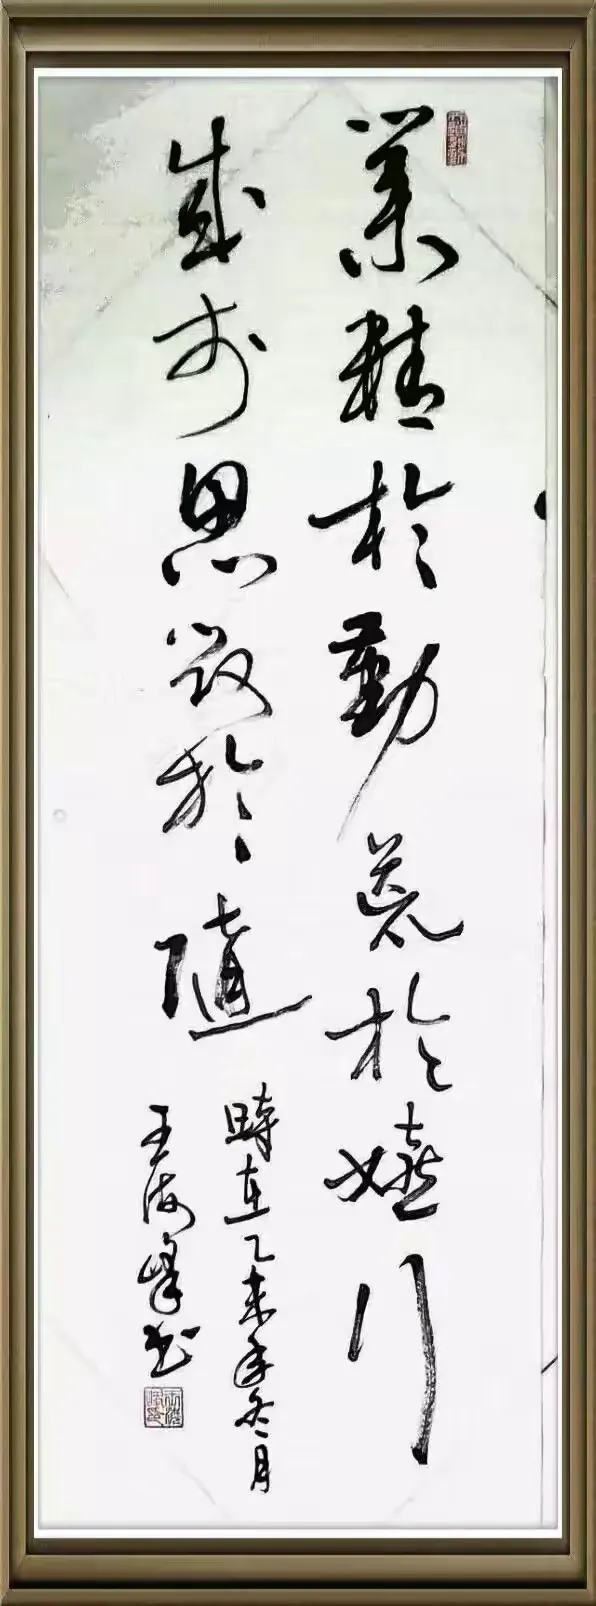 業精於勤荒於嬉行
成於思毀於隨
時在乙未年冬月
王海峰書